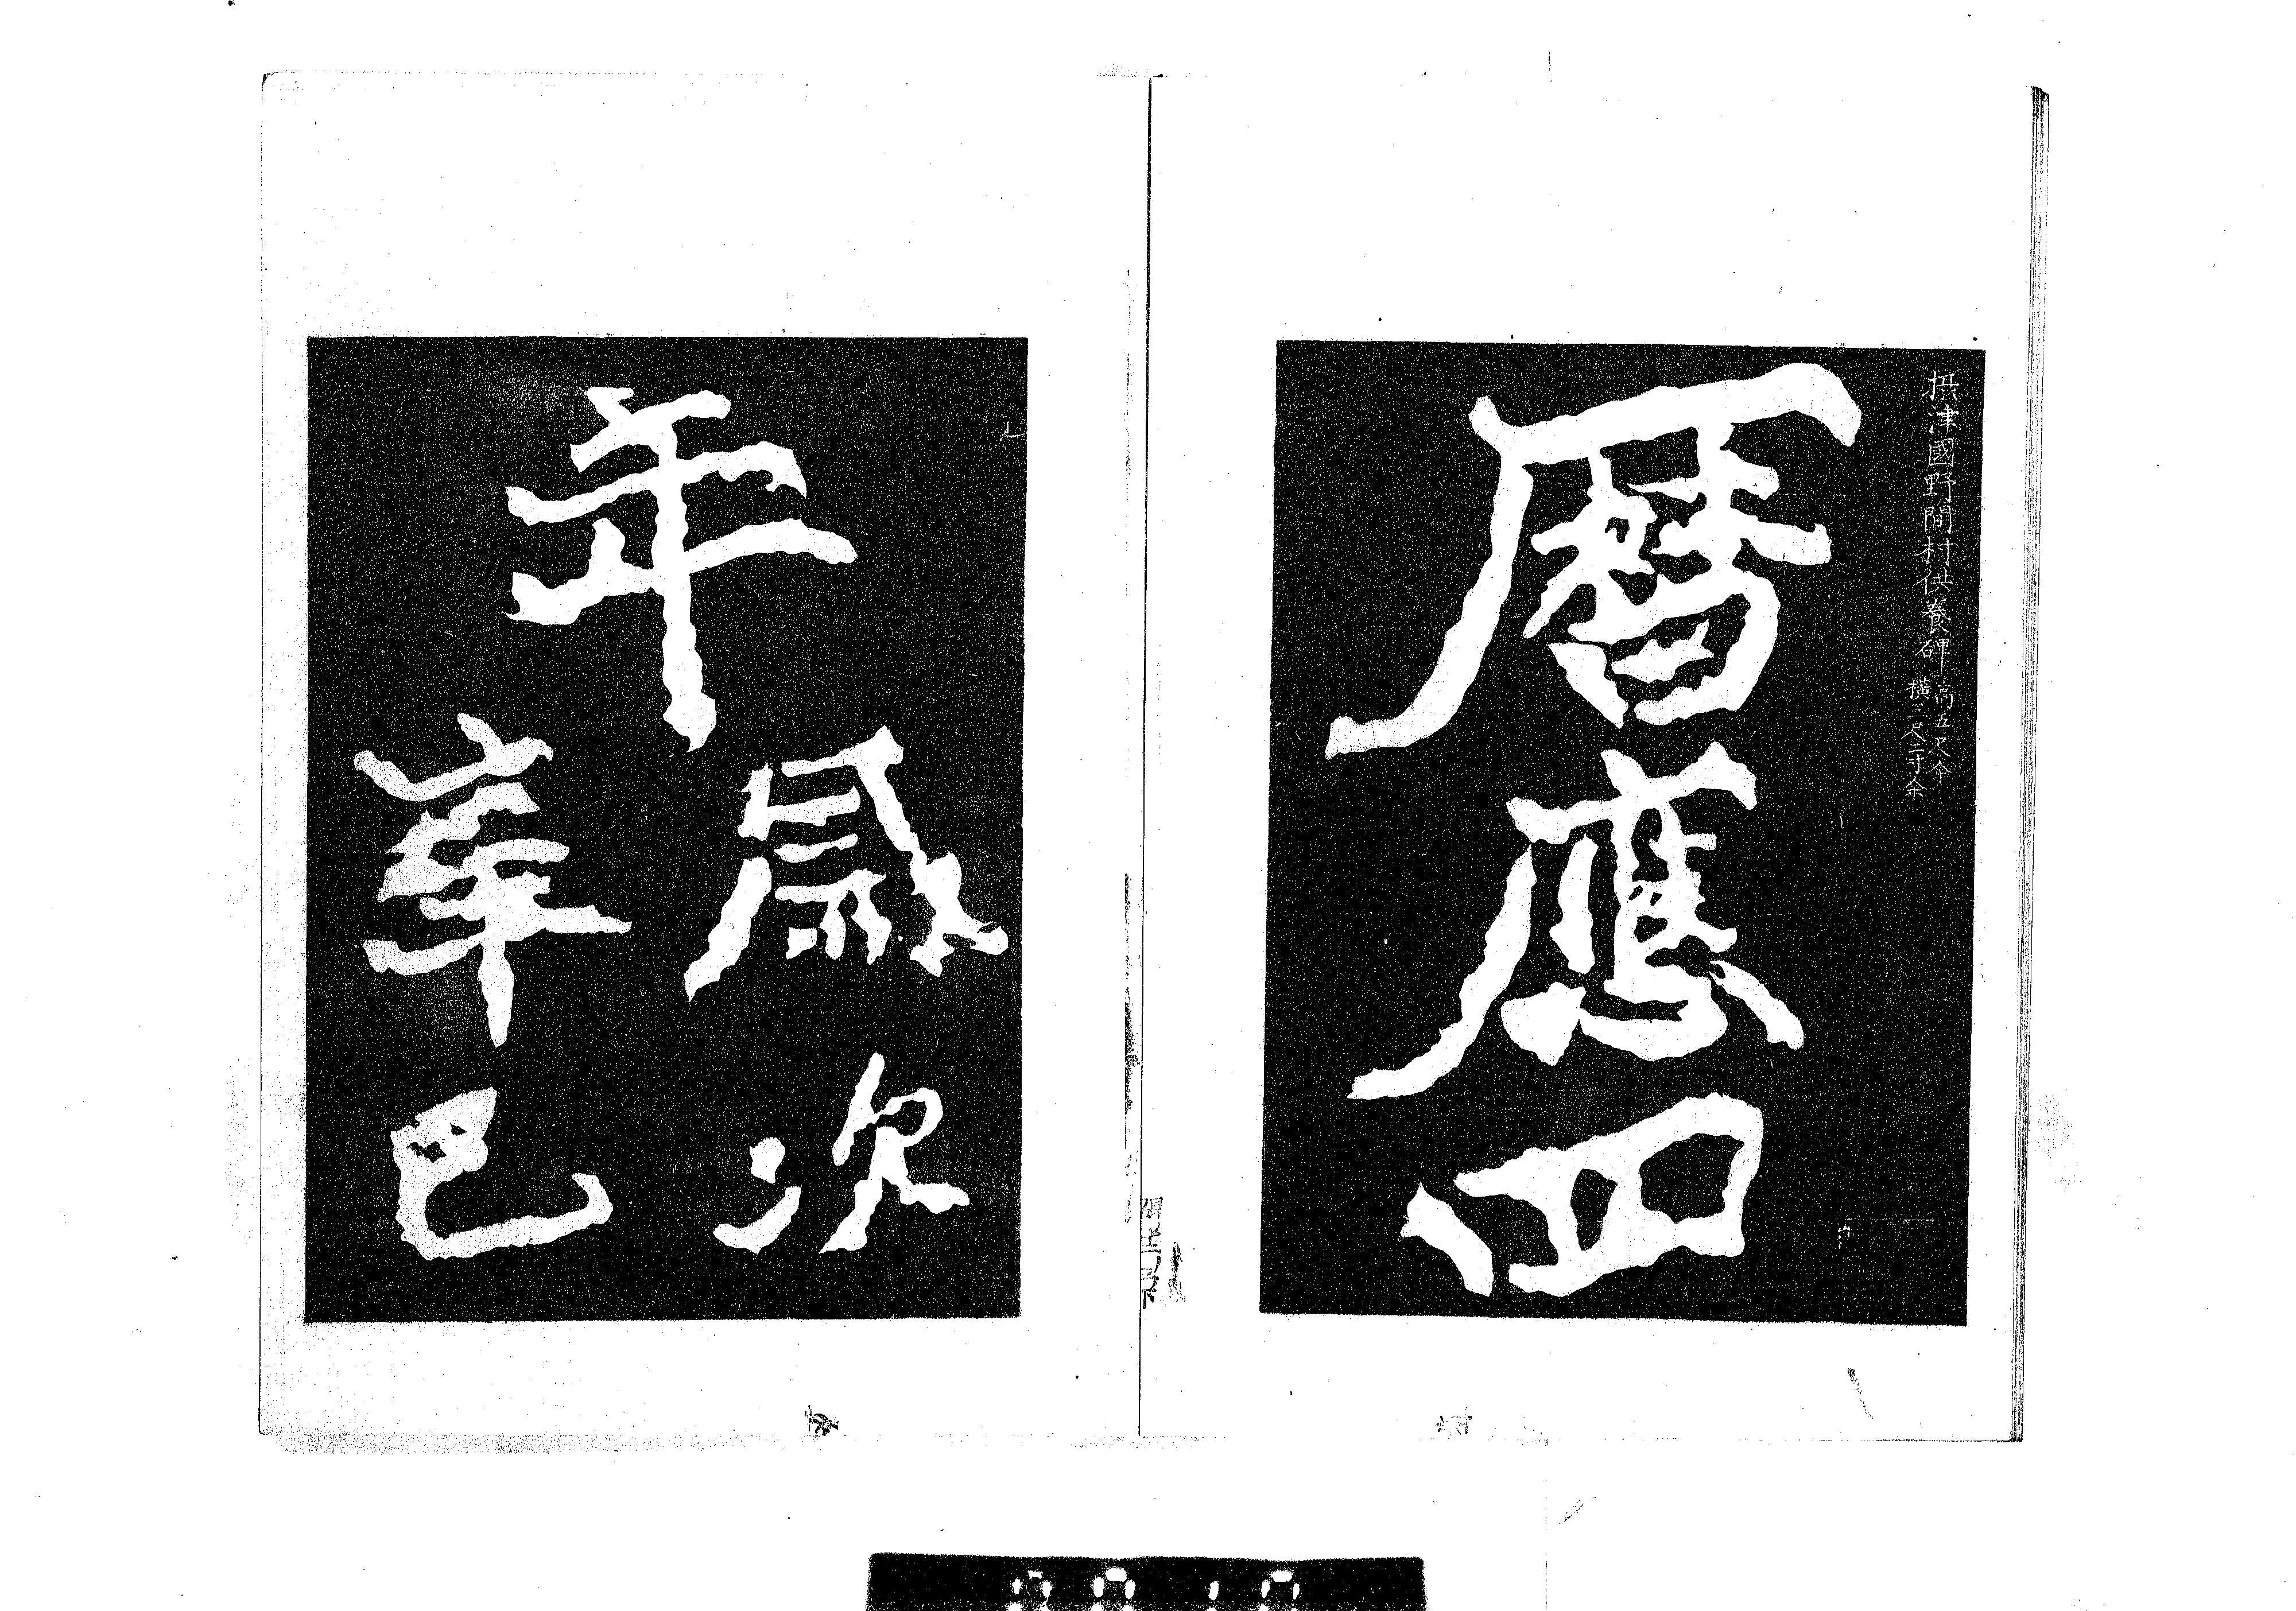 摂津國野間村供養碑
高五尺余
横三尺二寸余
曆應四
年
歳次
辛巳